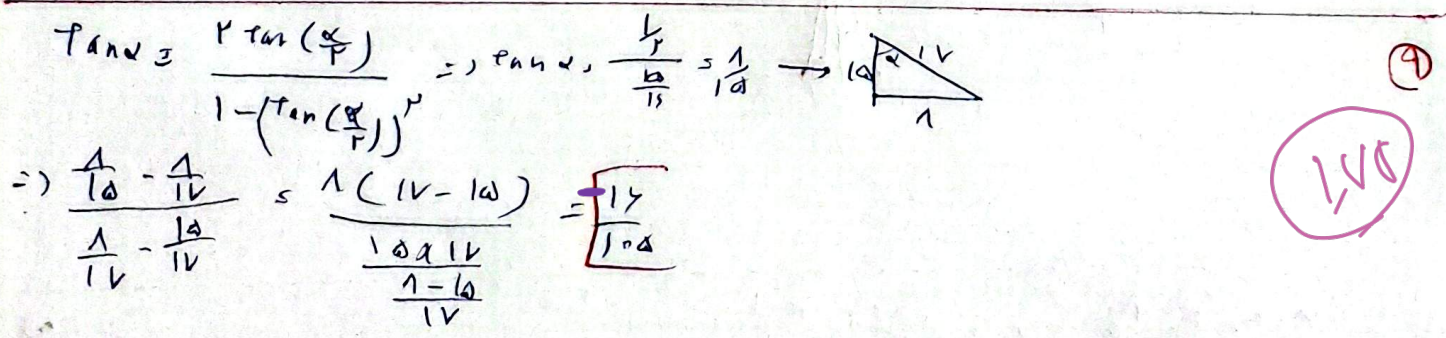 tanα = ۲ tan(α/۲) / ۱-(tan(α/۲))^۲ => tanα = (۱/۲) / (۱۵/۱۶) = ۸/۱۵ → ۱۵ α ۱۷ ۸ ۹
=> (۸/۱۵ - ۸/۱۷) / (۸/۱۷ - ۱۵/۱۷) = (۸(۱۷-۱۵) / ۱۵×۱۷) / ((۸-۱۵) / ۱۷) = -۱۶/۱۰۵ ۱,۷۵